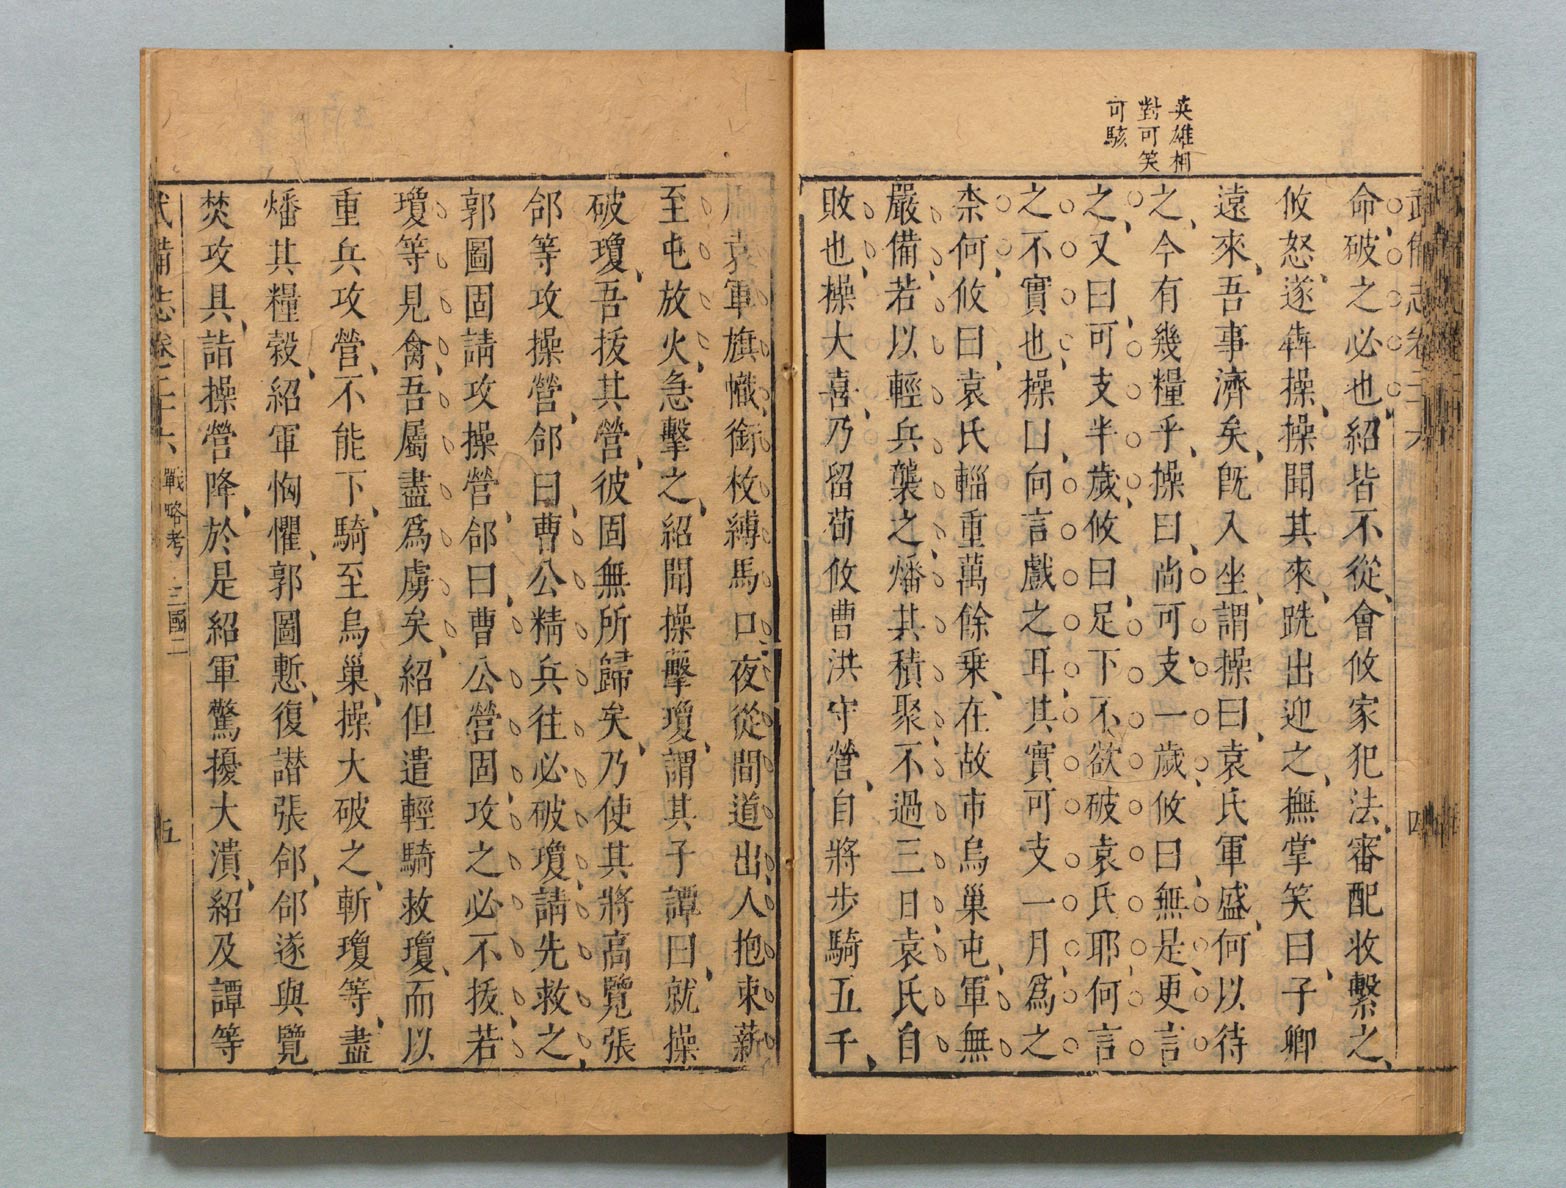 英雄相
對可笑
可駭
武備志卷二十六
四
命破之必也紹皆不從會攸家犯法審配收繫之
攸怒遂犇操操聞其來跣出迎之撫掌笑曰子卿
遠來吾事濟矣旣入坐謂操曰袁氏軍盛何以待
之今有幾糧乎操曰尚可支一歲攸曰無是更言
之又曰可支半歲攸曰足下不欲破袁氏耶何言
之不實也操曰向言戲之耳其實可支一月爲之
柰何攸曰袁氏輜重萬餘乗在故市烏巢屯軍無
嚴備若以輕兵襲之燔其積聚不過三日袁氏自
敗也操大喜乃留荀攸曹洪守營自將步騎五千
袁軍旗幟銜枚縛馬口夜從間道出人抱束薪
至屯放火急擊之紹聞操擊瓊謂其子譚曰就操
破瓊吾拔其營彼固無所歸矣乃使其將高覽張
郃等攻操營郃曰曹公精兵往必破瓊請先救之
郭圖固請攻操營郃曰曹公營固攻之必不拔若
瓊等見禽吾屬盡爲虜矣紹但遣輕騎救瓊而以
重兵攻營不能下騎至烏巢操大破之斬瓊等盡
燔其糧穀紹軍恟懼郭圖慙復譖張郃郃遂與覽
焚攻具詣操營降於是紹軍驚擾大潰紹及譚等
武備志卷二十六 戰略考 三國二
五